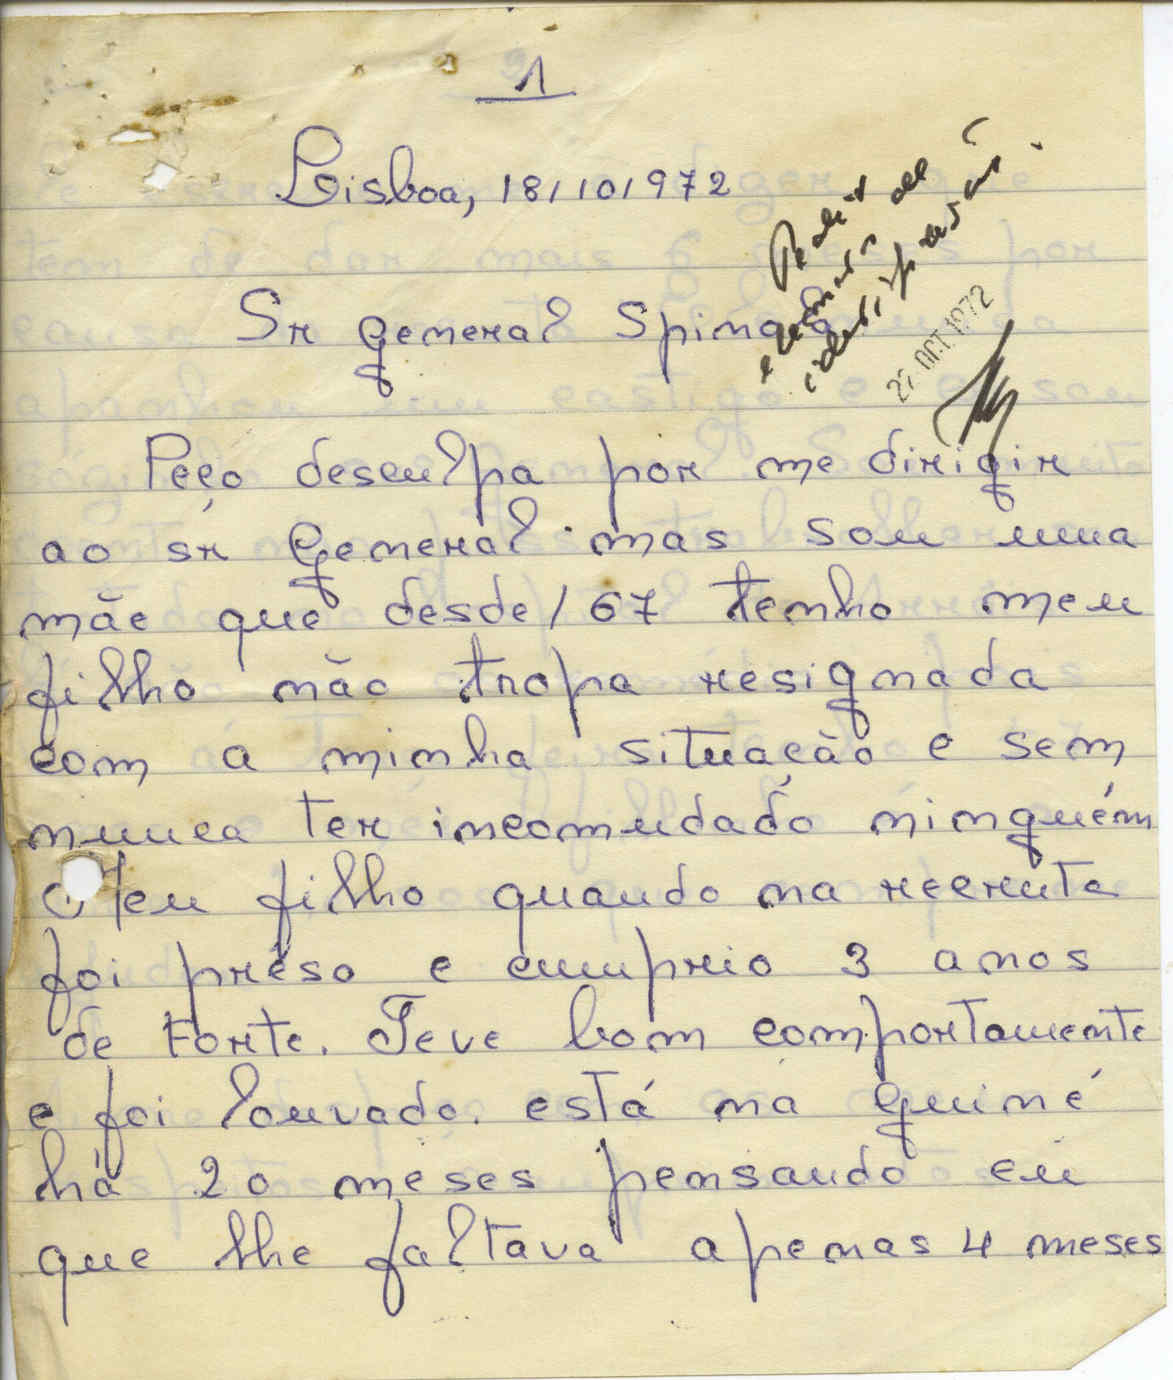 1
Lisboa, 18/10/972
Sr general Spinola
27 OCT. 1972
Peço desculpa por me dirigir
ao sr general mas sou uma
mãe que desde/67 tenho meu
filho não tropa resignada
com a minha situação e sem
nunca ter incomudado ninguém
O Meu filho quando na recruta
foi prêso e cumprio 3 anos
de Forte. Teve bom comportamente
e foi louvado. está na Guiné
há 20 meses pensando eu
que lhe faltava apenas 4 meses